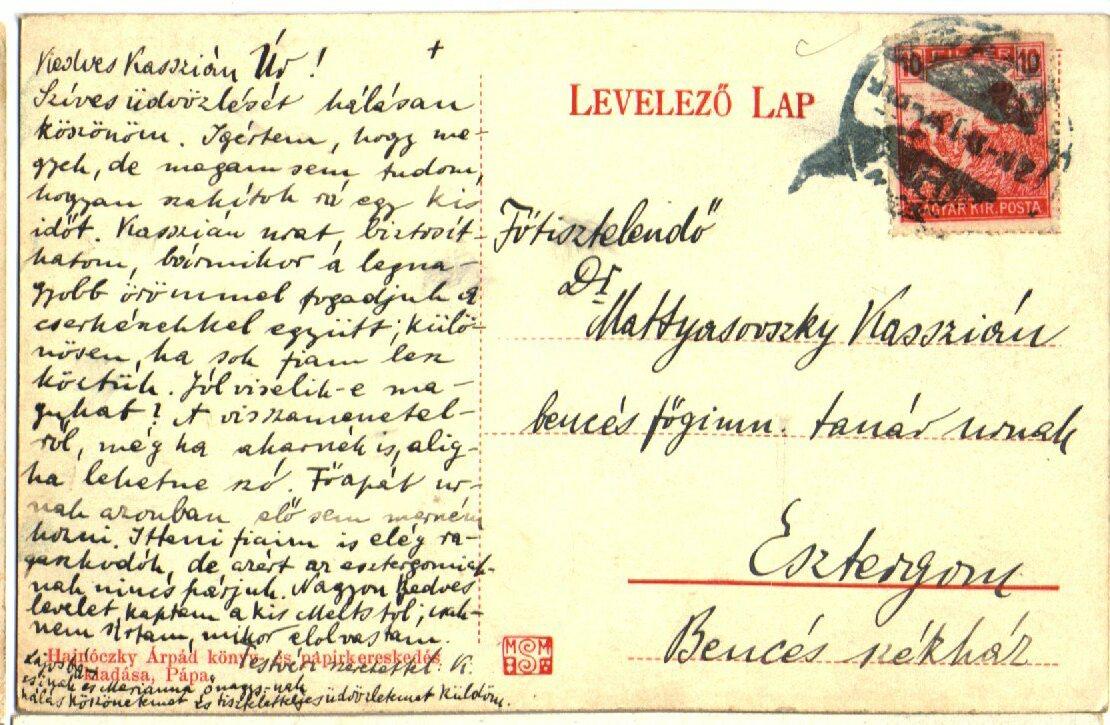 Kedves Kasszián Úr!
Szíves üdvözlését hálásan
köszönöm. Igértem, hogy me-
gyek, de magam sem tudom,
hogyan szakítok rá egy kis
időt. Kasszián urat, biztosít-
hatom, bármikor a legna-
gyobb örömmel fogadjuk a
cserkészekkel együtt; külö-
nösen, ha sok fiam lesz
köztük. Jól viselik-e ma-
gukat? A visszamenetel-
ről, még ha akarnék is, alig-
ha lehetne szó. Főapát úr-
nak azonban elő sem merném
hozni. Itteni fiaim is elég ra-
gaszkodók, de azért az esztergomiak-
nak nincs párjuk. Nagyon kedves
levelet kaptam a kis Meltstől; csak-
nem sírtam, mikor elolvastam.
Testvéri szeretettel K.
nak és Marianna önagys.nak
hálás köszönetemet és tiszteletteljes üdvözletemet küldöm.
Hajnóczky Árpád könyv- és papirkereskedés
kiadása, Pápa.
LEVELEZŐ LAP
10 FILLÉR 10
MAGYAR KIR. POSTA
Főtisztelendő
Dr
Mattyasovszky Kasszián
bencés főgimn. tanár urnak
Esztergom
Bencés székház
MSM